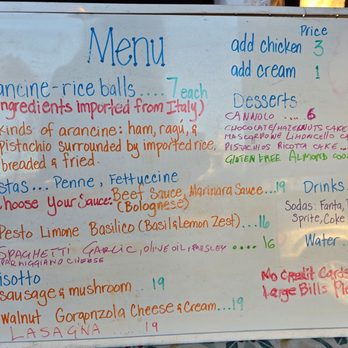 Menu
ancine-rice balls.... 7 each
ingredients imported from Italy)
kinds of arancine: ham, ragú, &
pistachio surrounded by imported rice,
breaded & fried.
stas... Penne, Fettuccine
Choose Your Sauce: Beef Sauce, Marinara Sauce...19
(Bolognese)
Pesto Limone Basilico (Basil & Lemon Zest)...16
SPAGHETTI GARLIC, OLIVE OIL, PARSLEY.... 16
PARMIGGIANO CHEESE
isotto
sausage & mushroom.. 19
Walnut Gorgonzola Cheese & Cream...19
LASAGNA .. 19
Price
add chicken 3
add cream 1
Desserts
CANNOLO .... 6
CHOCOLATE/HAZELNUTS CAKE
MASCARPONE LIMONCELLO CA
PISTACHIOS RICOTTA CAKE...
GLUTEN FREE ALMOND COO
Drinks
Sodas: Fanta,
Sprite, Coke
Water..
No Credit Cards
Large Bills Pl